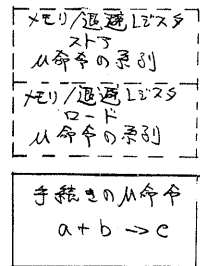 メモリ/退避レジスタ
ストア
μ命令の系列
メモリ/退避レジスタ
ロード
μ命令の系列
手続きのμ命令
a+b->c